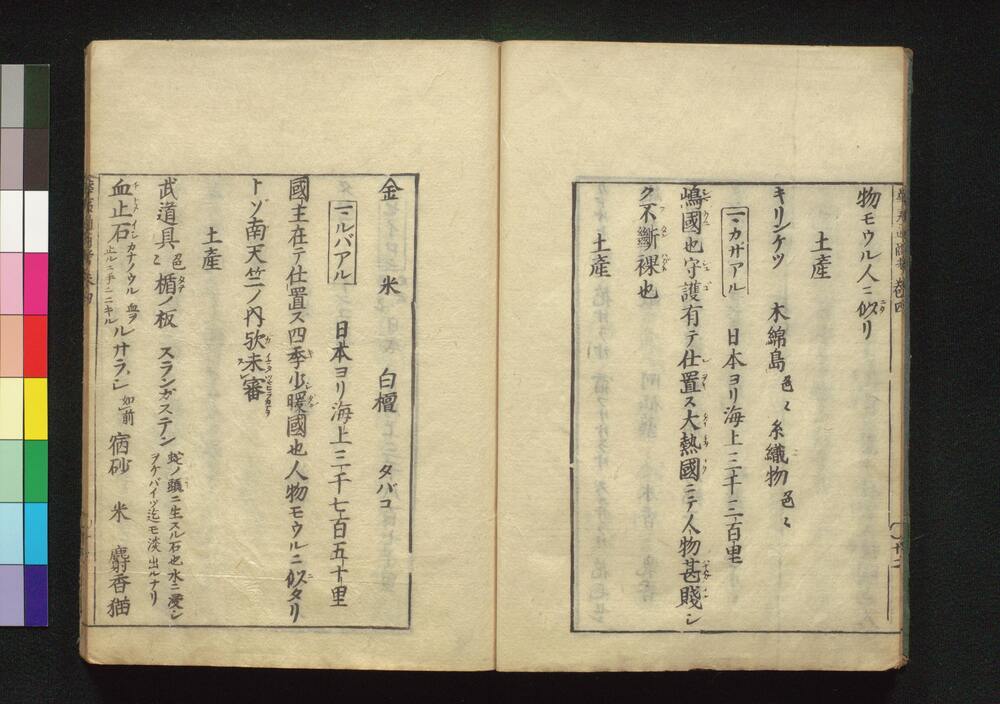 物モウル人ニ似リ
土産
キリンケツ 木綿島 色〻 糸織物 色〻
一カガアル 日本ヨリ海上三千三百里
嶋國也守護有テ仕置ス大熱國ニテ人物甚賤シ
ク不斷裸也
土産
金 米 白檀 タバコ
日本ヨリ海上三千七百五十里
國主在テ仕置ス四季少暖國也人物モウルニ似タリ
トゾ南天竺ノ内欤未審
土産
武道具 色〻 楯ノ板 スランガステン 蛇ノ頭ニ生スル石也水ニ浸シ
ヲケバイツ迄モ淡出ルナリ
血止石 カナノウル 血ヲ
止ルニ手ニニキル ルサラシ 如前 宿砂 米 麝香猫